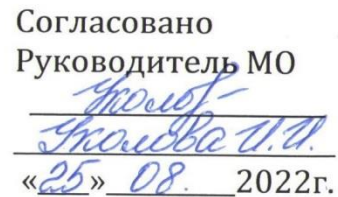 Согласовано
Руководитель МО
Уколова И.И.
«25» 08. 2022г.